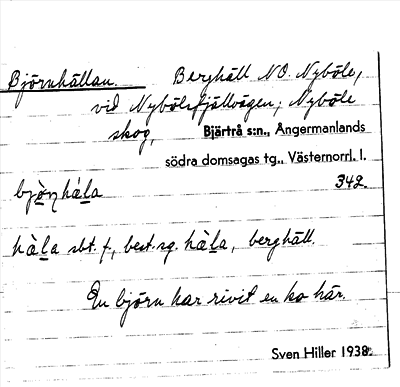 Björnhällan. Berghäll NO. Nyböle,
vid Nybölefjällvägen, Nyböle
skog, Bjärtrå s:n., Ångermanlands
södra domsagas tg., Västernorrl. l.
bjò̠ṇhà̀l̠a 342.
hàl̠a sbt. f., best. sg. hàl̠a, berghäll.
En björn har rivit en ko här.
Sven Hiller 1938.